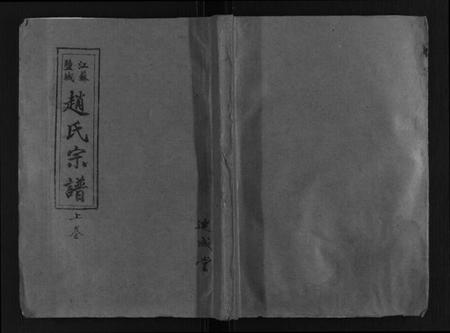 江蘇
鹽城
趙氏宗譜
上卷
連城堂